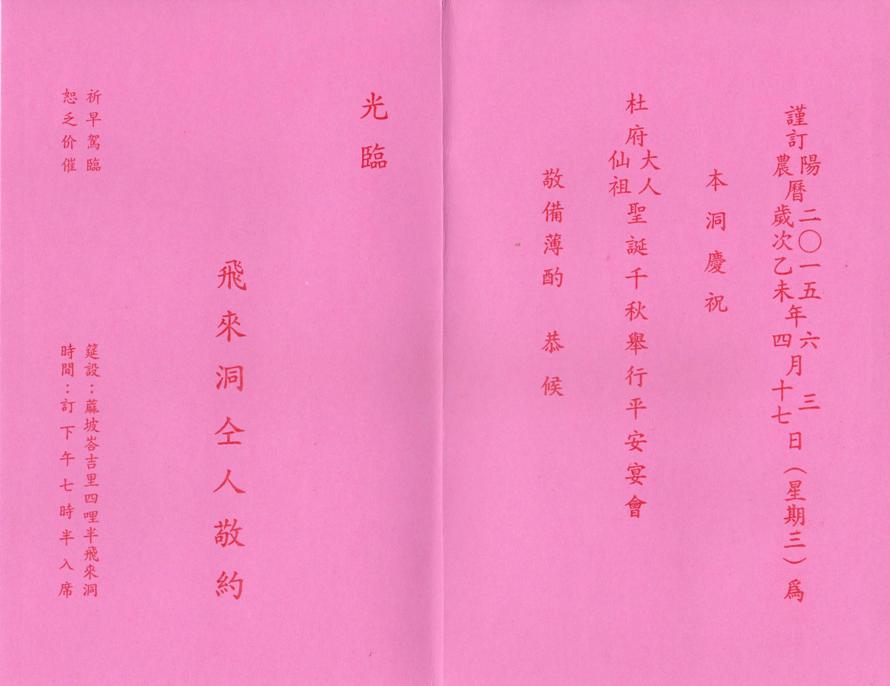 謹訂陽農曆二〇一五歲次乙未年六四月三十七日（星期三）爲
本洞慶祝
杜府大人仙祖聖誕千秋舉行平安宴會
敬備薄酌 恭候
光臨
飛來洞仝人敬約
祈早駕臨
恕乏价催
筵設：蔴坡峇吉里四哩半飛來洞
時間：訂下午七時半入席